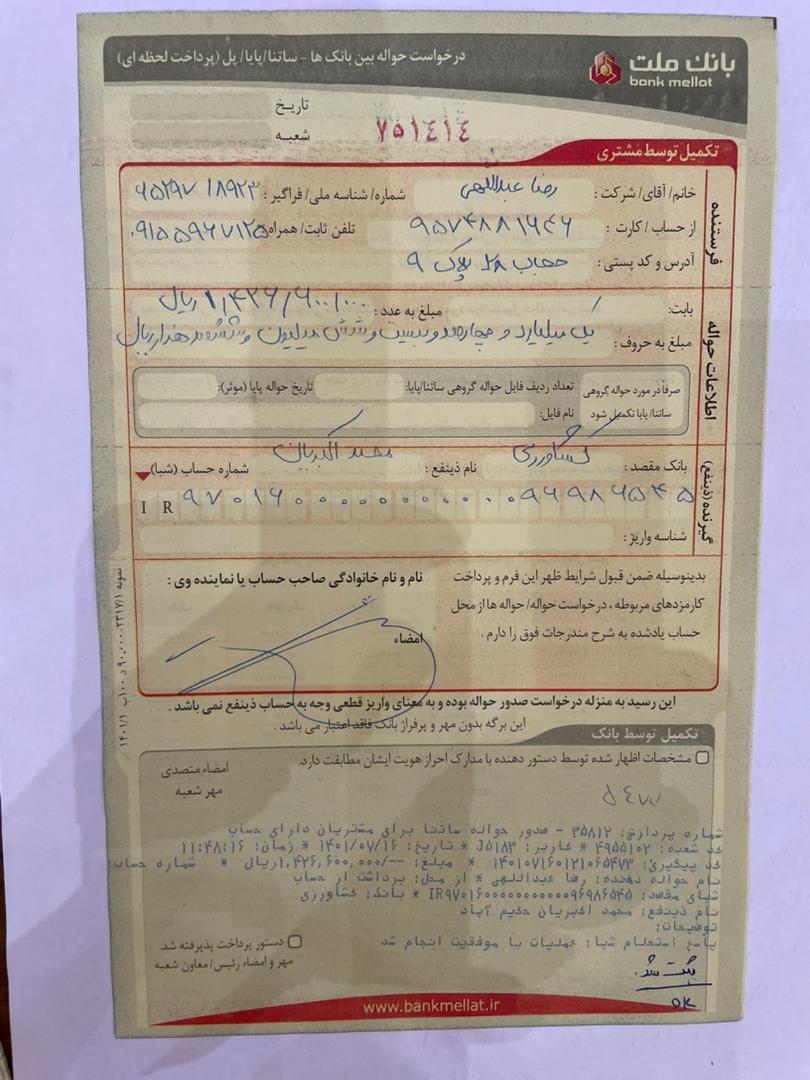 بانک ملت
bank mellat
درخواست حواله بین بانک ها - ساتنا/پایا/پل (پرداخت لحظه ای)
تاریخ
شعبه
۷۵۱٤۱٤
تکمیل توسط مشتری
فرستنده
خانم/آقای/شرکت: رضا عبداللهی شماره/شناسه ملی/فراگیر:
از حساب/کارت: تلفن ثابت/همراه:
آدرس و کد پستی: پلاک ۹
اطلاعات حواله
بابت: مبلغ به عدد: ۱,۴۲۶/۶۰۰/۰۰۰ ریال
مبلغ به حروف: یک میلیارد و چهارصد و بیست و شش میلیون و ششصد هزار ریال
صرفاً در مورد حواله گروهی ساتنا/پایا تکمیل شود
تعداد ردیف فایل حواله گروهی ساتنا/پایا: تاریخ حواله پایا (موثر):
نام فایل:
گیرنده (ذینفع)
بانک مقصد: کشاورزی نام ذینفع: محمد اکبریان شماره حساب (شبا)
IR ۹۷۰۱۶۰۰۰۰۰۰۰۰۰۰۰۰۹۶۹۸۶۵۴۵
شناسه واریز:
بدینوسیله ضمن قبول شرایط ظهر این فرم و پرداخت
کارمزدهای مربوطه، درخواست حواله/حواله ها از محل
حساب یادشده به شرح مندرجات فوق را دارم.
نام و نام خانوادگی صاحب حساب یا نماینده وی:
امضاء
این رسید به منزله درخواست صدور حواله بوده و به معنای واریز قطعی وجه به حساب ذینفع نمی باشد.
این برگه بدون مهر و پرفراژ بانک فاقد اعتبار می باشد.
تکمیل توسط بانک
مشخصات اظهار شده توسط دستور دهنده با مدارک احراز هویت ایشان مطابقت دارد.
امضاء متصدی
مهر شعبه
شماره پردازش: ۳۵۸۱۲ - صدور حواله ساتنا برای مشتریان دارای حساب
کد شعبه: ۴۹۵۵۱۰۲ * کاربر: J۵۱۸۳ * تاریخ: ۱۴۰۱/۰۷/۱۶ * زمان: ۱۱:۴۸:۱۶
کد پیگیری: ۱۴۰۱۰۷۱۶۰۱۲۱۰۶۵۴۷۳ * مبلغ: --/۱,۴۲۶,۶۰۰,۰۰۰ریال * شماره حساب:
نام حواله دهنده: رضا عبداللهی * از محل: برداشت از حساب
شبای مقصد: IR۹۷۰۱۶۰۰۰۰۰۰۰۰۰۰۰۰۹۶۹۸۶۵۴۵ * بانک: کشاورزی
نام ذینفع: محمد اکبریان حکیم آباد
توضیحات:
پاسخ استعلام شبا: عملیات با موفقیت انجام شد
دستور پرداخت پذیرفته شد.
مهر و امضاء رئیس/معاون شعبه
ثبت شد.
OK
www.bankmellat.ir